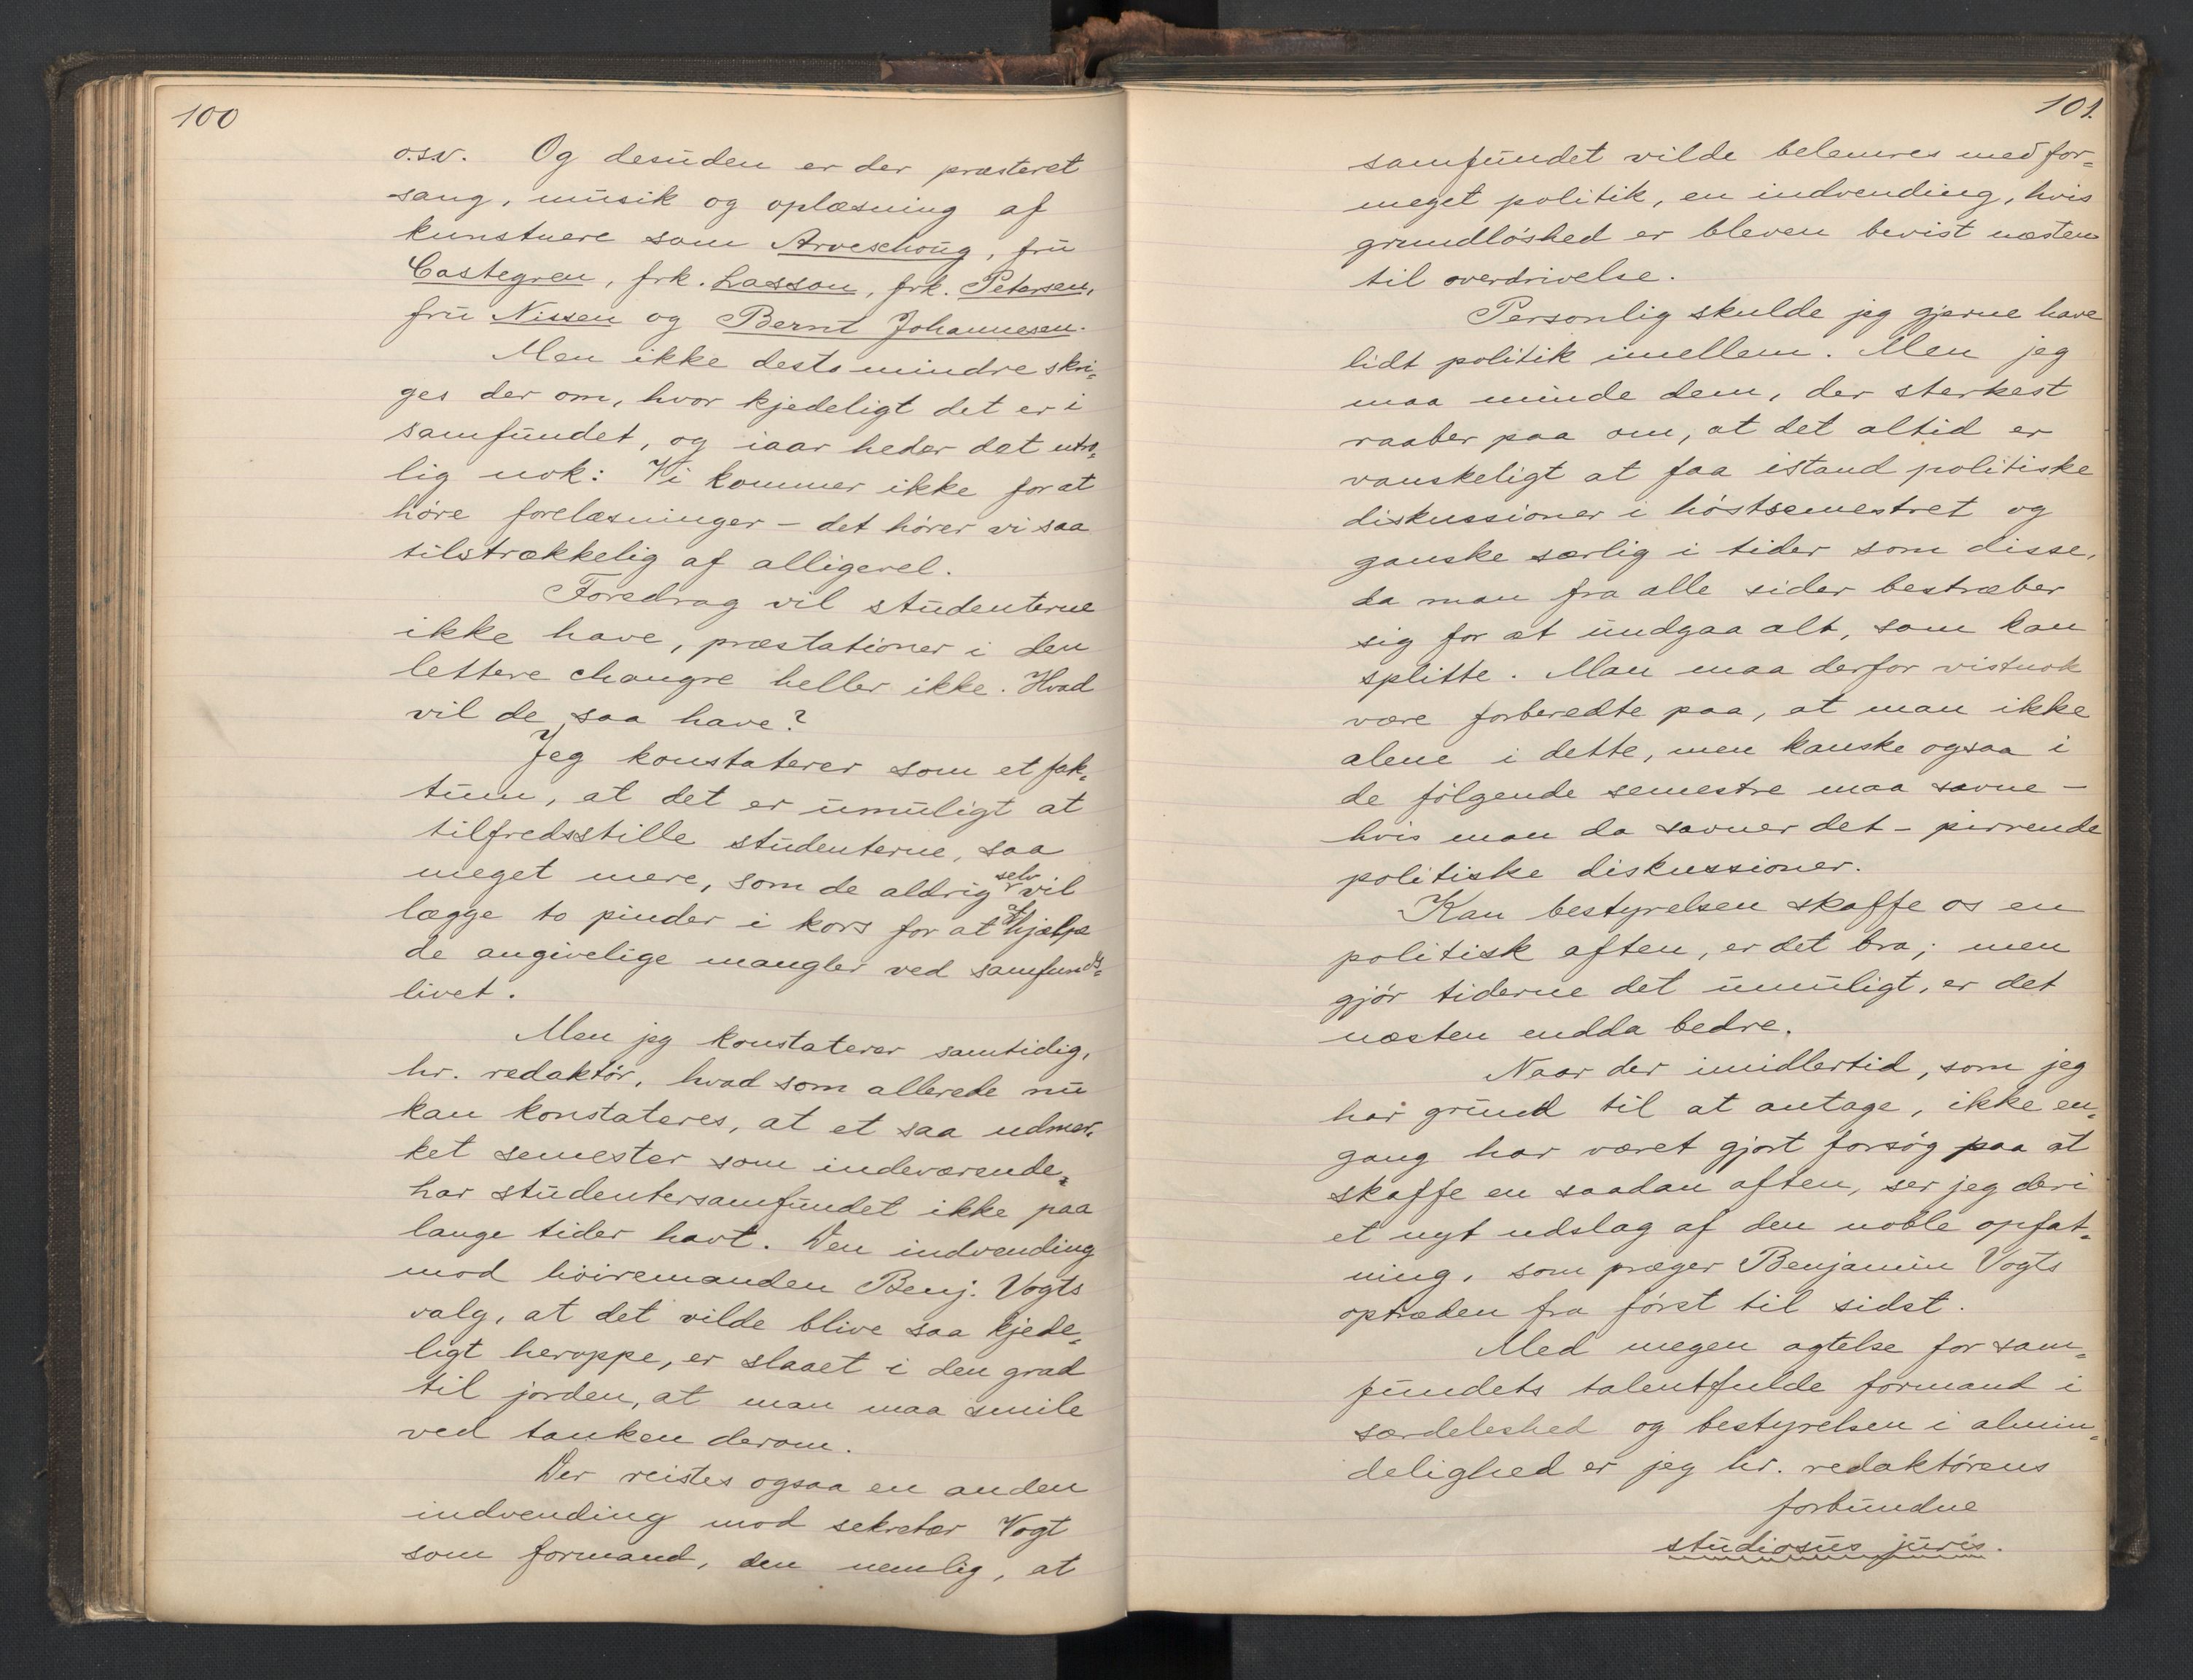 100
o.s.v. Og desuden er der præsteret
sang, musik og oplæsning af
kunstnere som Arveschoug, fru
Castegren, frk. Lasson, frk. Petersen,
fru Nissen og Bernt Johannesen.
Men ikke desto mindre skri-
ges der om, hvor kjedeligt det er i
samfundet, og iaar heder det utro-
lig nok: Vi kommer ikke for at
høre forelæsninger – det hører vi saa
tilstrækkelig af alligevel.
Foredrag vil studenterne
ikke have, præstationer i den
lettere changre heller ikke. Hvad
vil de saa have?
Jeg konstaterer som et fak-
tum, at det er umuligt at
tilfredsstille studenterne, saa
meget mere, som de aldrig selv vil
lægge to pinder i kors for at afhjælpe
de angivelige mangler ved samfunds-
livet.
Men jeg konstaterer samtidig,
hr. redaktør, hvad som allerede nu
kan konstateres, at et saa udmær-
ket semester som indeværende,
har studentersamfundet ikke paa
lange tider havt. Den indvending
mod høiremanden Benj. Vogts
valg, at det vilde blive saa kjede-
ligt heroppe, er slaaet i den grad
til jorden, at man maa smile
ved tanken derom.
Der reistes ogsaa en anden
indvending mod sekretær Vogt
som formand, den nemlig, at
101.
samfundet vilde belemres med for-
meget politik, en indvending, hvis
grundløshed er bleven bevist næsten
til overdrivelse.
Personlig skulde jeg gjerne have
lidt politik imellem. Men jeg
maa minde dem, der sterkest
raaber paa om, at det altid er
vanskeligt at faa istand politiske
diskussioner i høstsemestret og
ganske særlig i tider som disse,
da man fra alle sider bestræber
sig for at undgaa alt, som kan
splitte. Man maa derfor vistnok
være forberedte paa, at man ikke
alene i dette, men kanske ogsaa i
de følgende semestre maa savne –
hvis man da savner det – pirrende
politiske diskussioner.
Kan bestyrelsen skaffe os en
politisk aften, er det bra; men
gjør tiderne det umuligt, er det
næsten endda bedre.
Naar der imidlertid, som jeg
har grund til at antage, ikke en-
gang har været gjort forsøg paa at
skaffe en saadan aften, ser jeg deri
et nyt udslag af den noble opfat-
ning, som præger Benjamin Vogts
optræden fra først til sidst.
Med megen agtelse for sam-
fundets talentfulde formand i
særdeleshed og bestyrelsen i almin-
delighed er jeg hr. redaktørens
forbundne
studiosus juris.